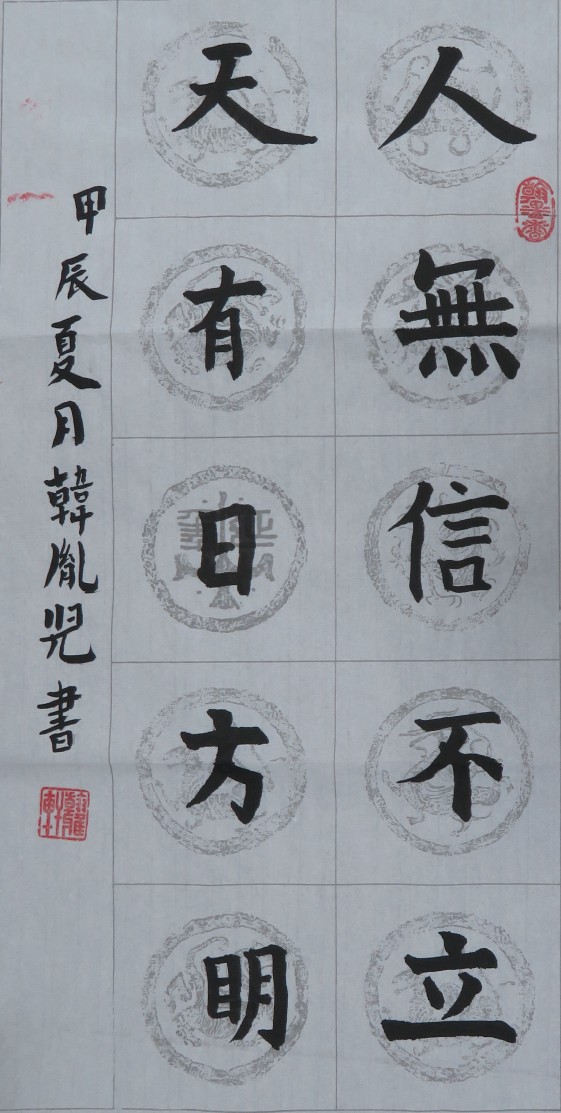 翰墨香
人無信不立
天有日方明
甲辰夏月韓胤書